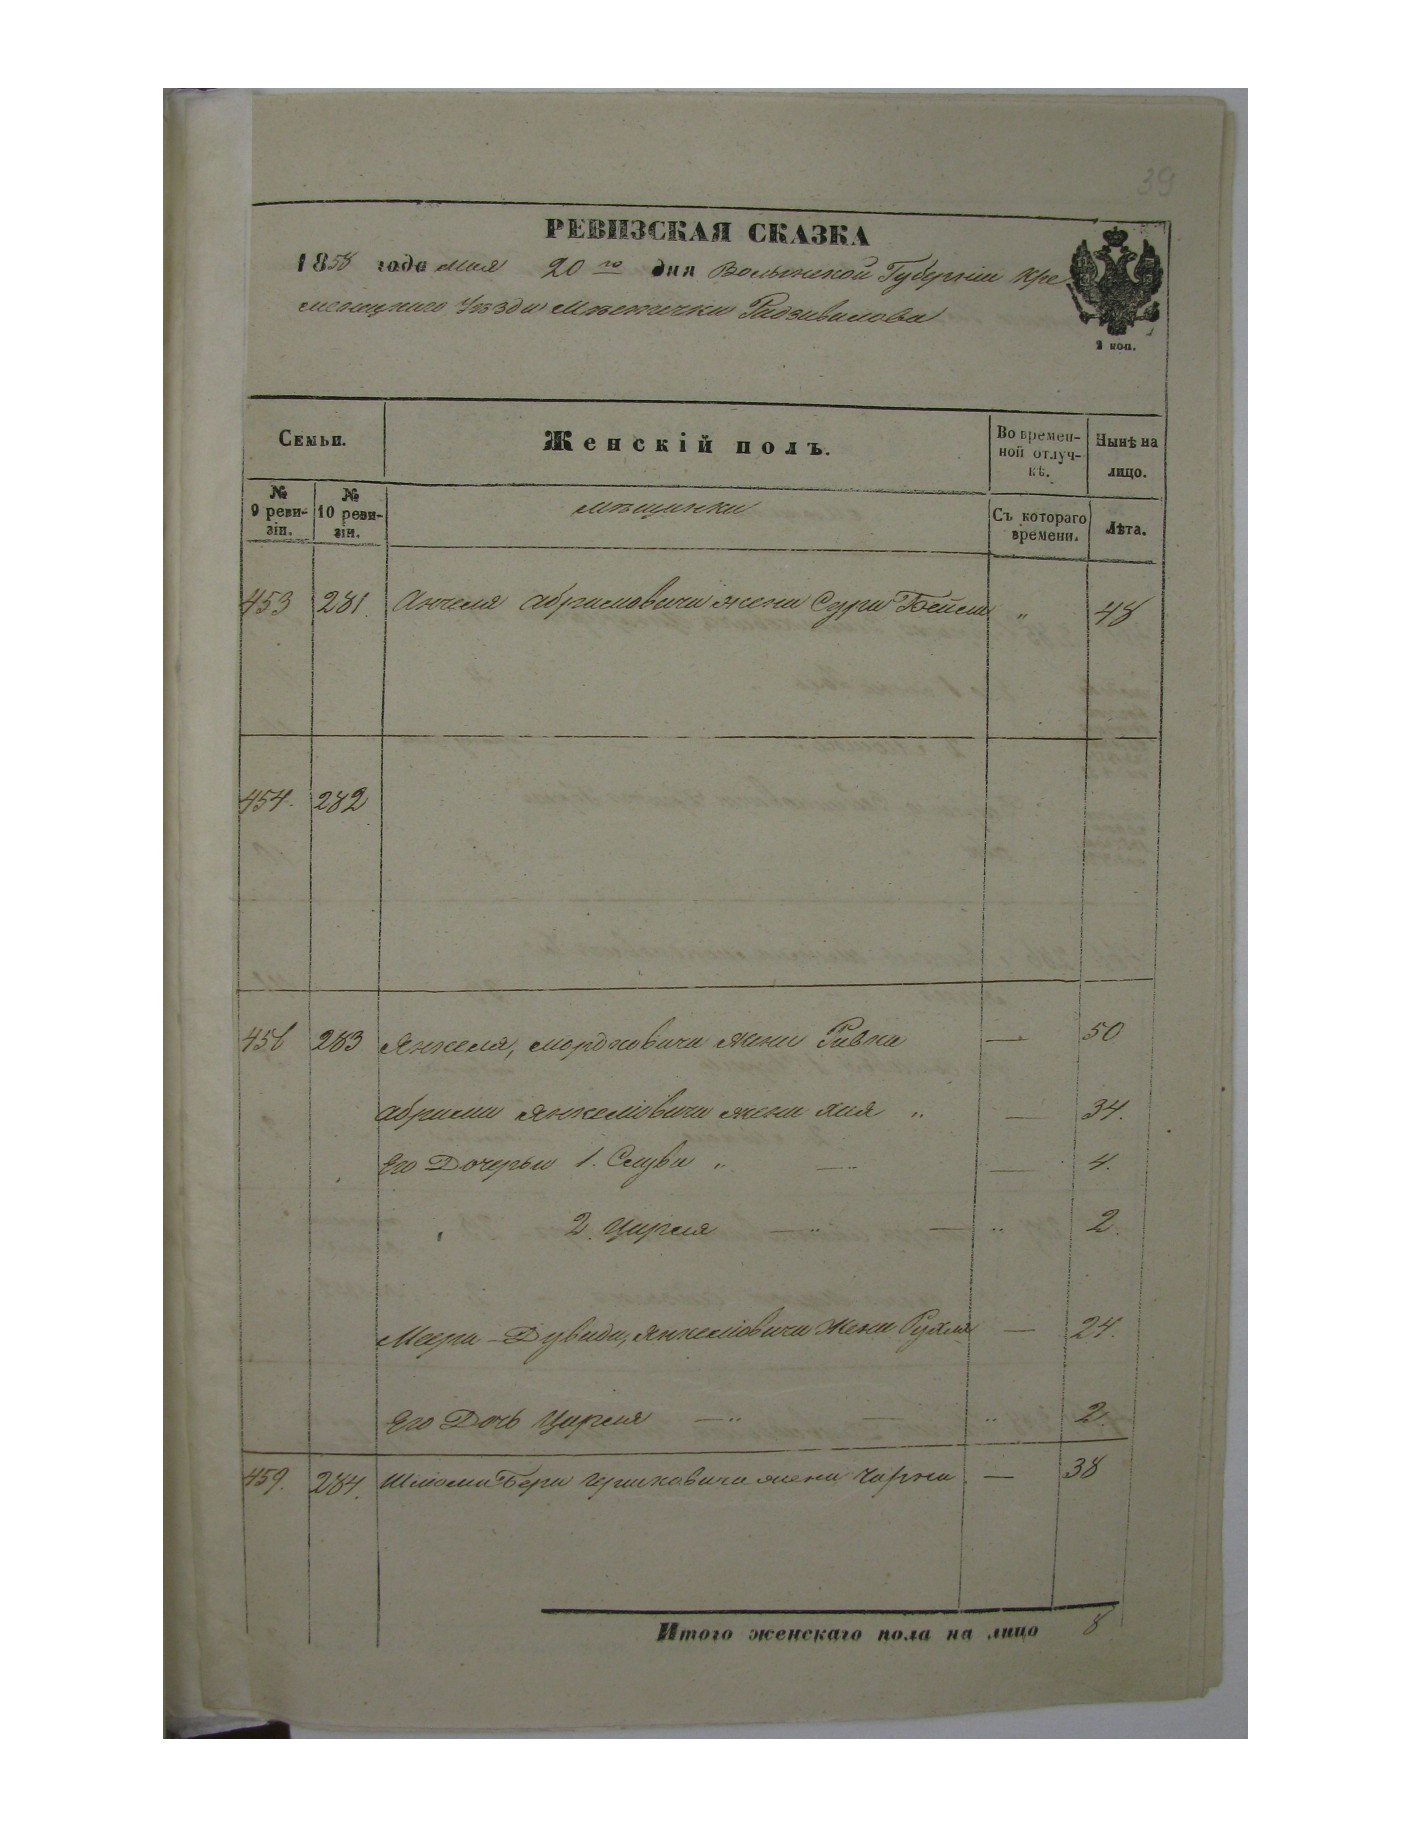 39
РЕВИЗСКАЯ СКАЗКА
1858 года мая 20 го дня Волынской Губерніи Кре
менецкого Уѣзда Мѣстечка Радзивилова
2 коп.
Семьи. Женскій полъ. Во времен-ной отлуч-кѣ. Нынѣ на лицо.
№ 9 реви-зіи. № 10 реви-зіи. мѣщанки Съ котораго времени. Лѣта.
453 281 Абрамовича жена Сура Бейла " 48
454. 282
456 283 Янкеля, Мордковича жена Ривка — 50
Абрама Янкеліовича жена Хая " — 34.
Его Дочерьи 1. Слува " — — 4.
2. Цирля — " — " 2.
Меера-Дувида, Янкеліовича Жена Рухля — 24.
Его Дочь Цирля — " — " 2.
459. 284. Шлома Бера Гершковича жена Чарна — 38
Итого женскаго пола на лицо 8